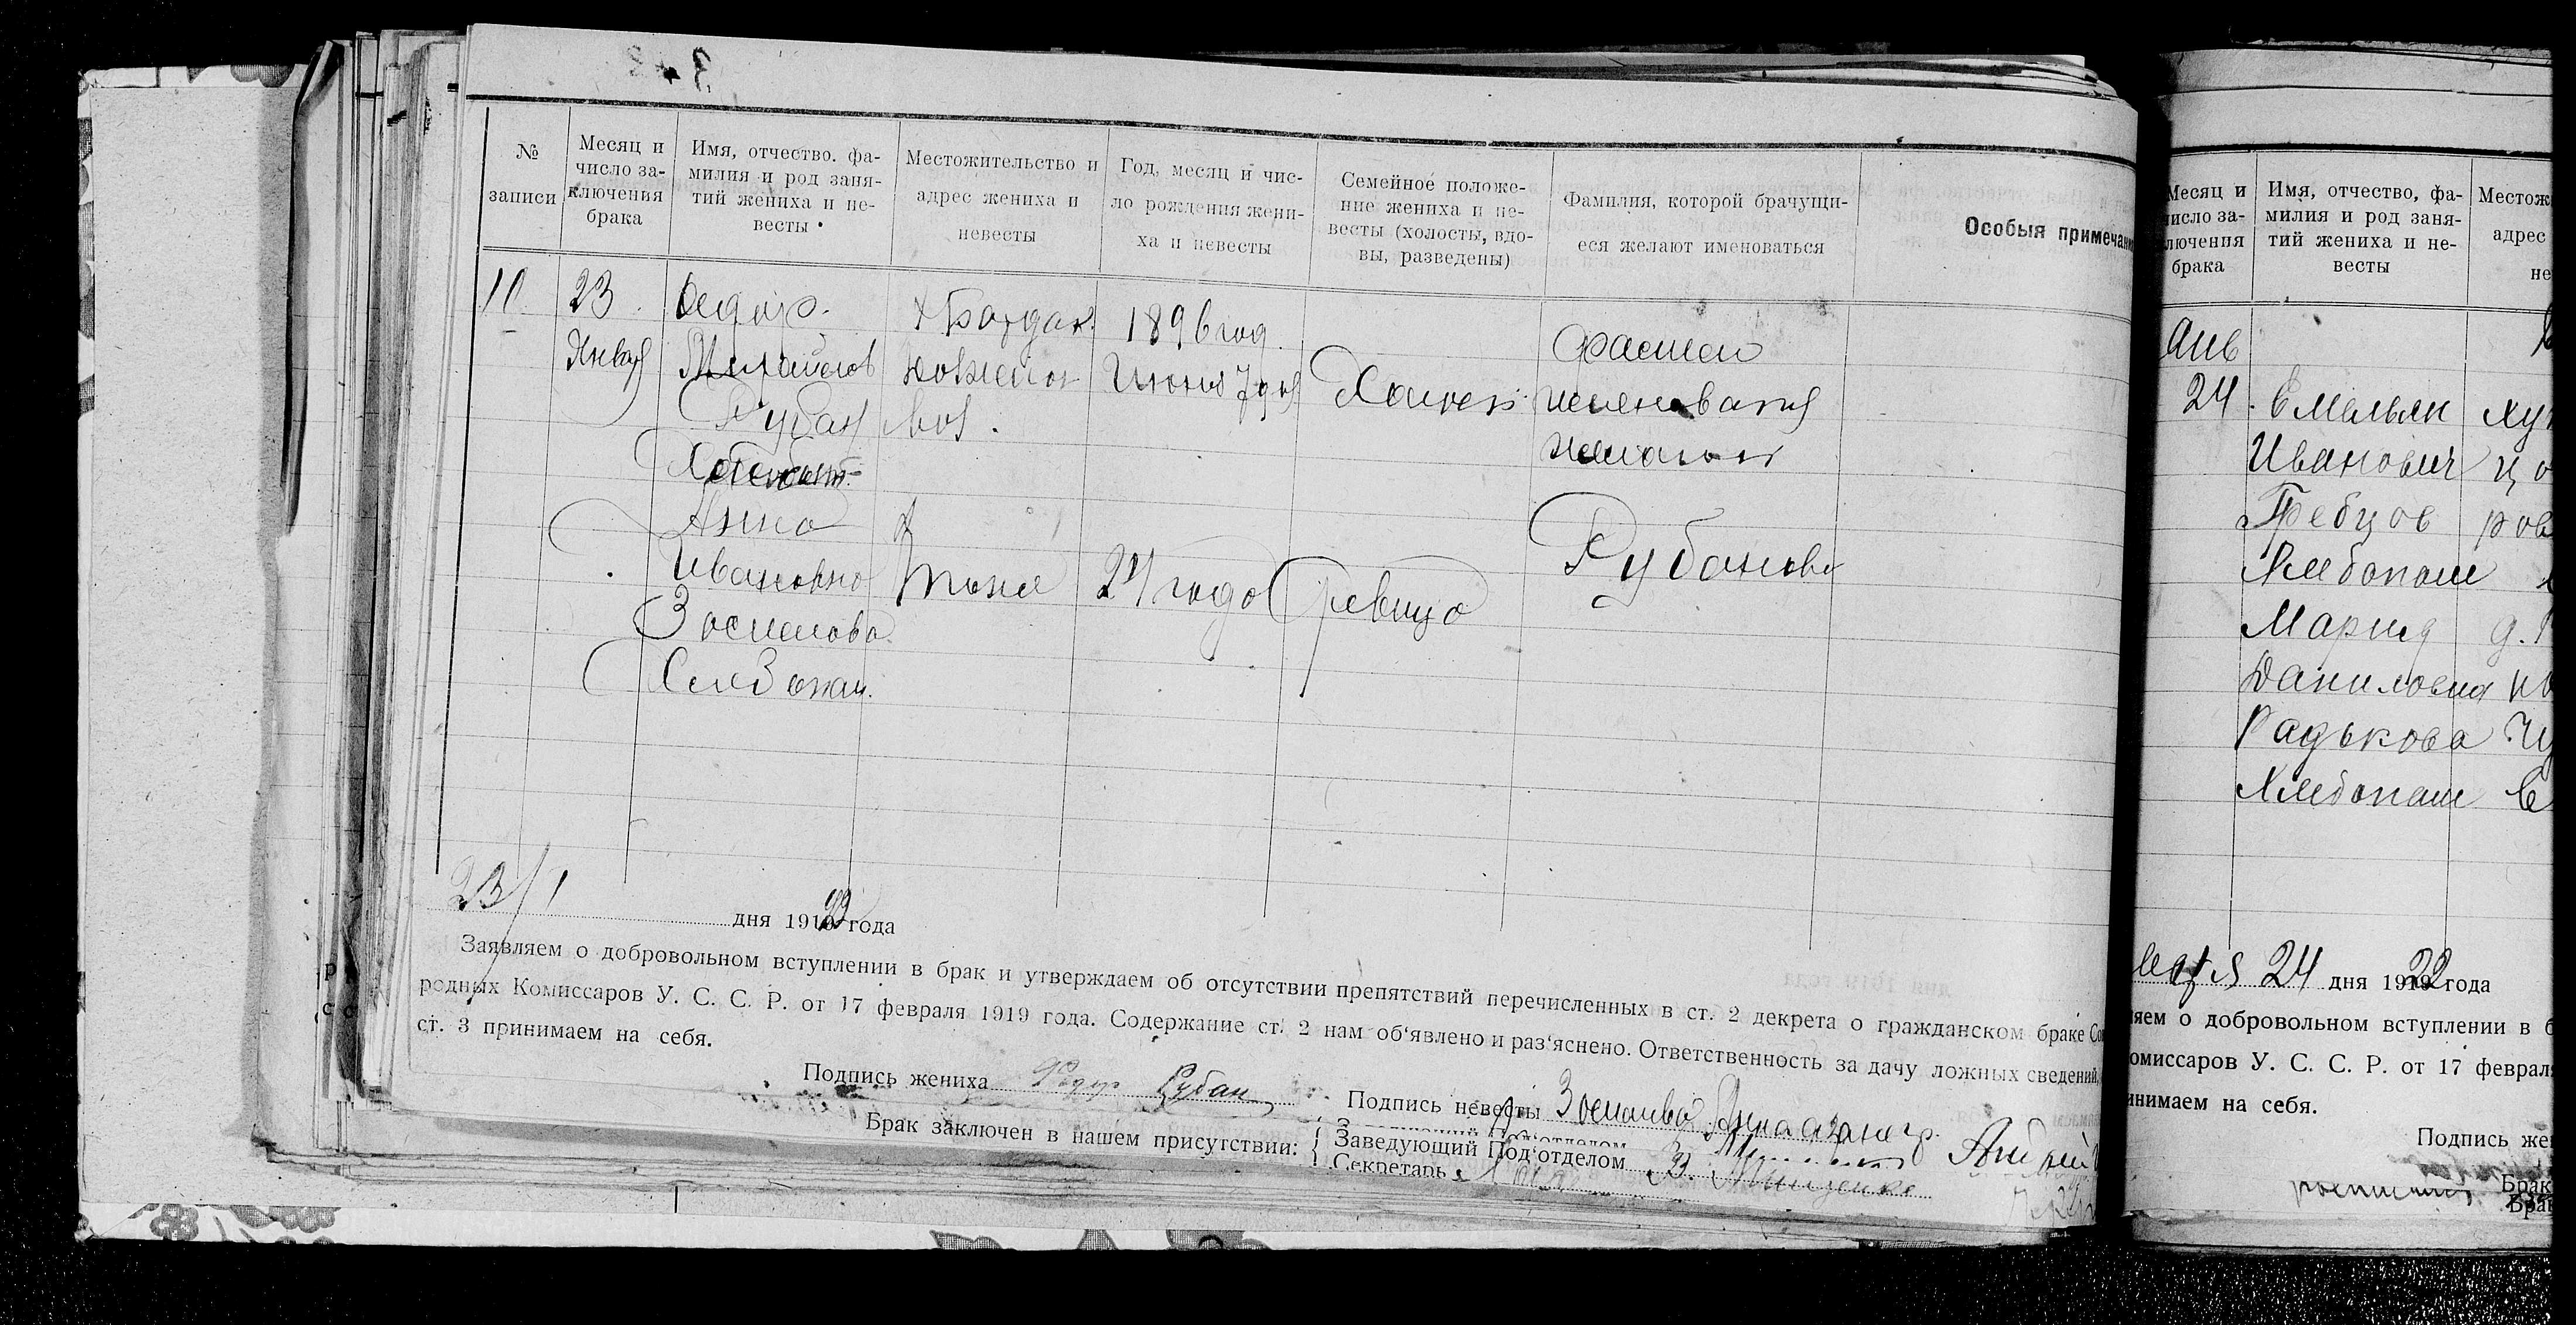 №
записи
Месяц и
число за-
ключения
брака
Имя, отчество. фа-
милия и род заня-
тий жениха и не-
весты
Местожительство и
адрес жениха и
невесты
Год, месяц и чис-
ло рождения жени-
ха и невесты
Семейное положе-
ние жениха и не-
весты (холосты, вдо-
вы, разведены)
Фамилия, которой брачущи-
еся желают именоваться
Особыя примечан
10
23
Январ
Федор
Михайлов
Рубан
1896 год
Июня 7 дня
Холост
Анна
Ивановна
Хлебопаш.
24 года
Девица
Рубанови
23/1
дня 1922 года
Заявляем о добровольном вступлении в брак и утверждаем об отсутствии препятствий перечисленных в ст. 2 декрета о гражданском браке Со
родных Комиссаров У. С. С. Р. от 17 февраля 1919 года. Содержание ст. 2 нам об‘явлено и раз‘яснено. Ответственность за дачу ложных сведений,
ст. 3 принимаем на себя.
Подпись жениха Федир Рубан
Подпись невесты
Брак заключен в нашем присутствии:
Заведующий Под‘отделом
Секретарь
Месяц и
число за-
лючения
брака
Имя, отчество, фа-
милия и род заня-
тий жениха и не-
весты
Местож
адрес
не
Янв
24
Емельян
Иванович
Гребцов
Хлебопаш
Мария
Даниловна
Радькова
Хлебопаш
24 дня 1922 года
яем о добровольном вступлении в б
омиссаров У. С. С. Р. от 17 феврал
инимаем на себя.
Подпись же
Брак